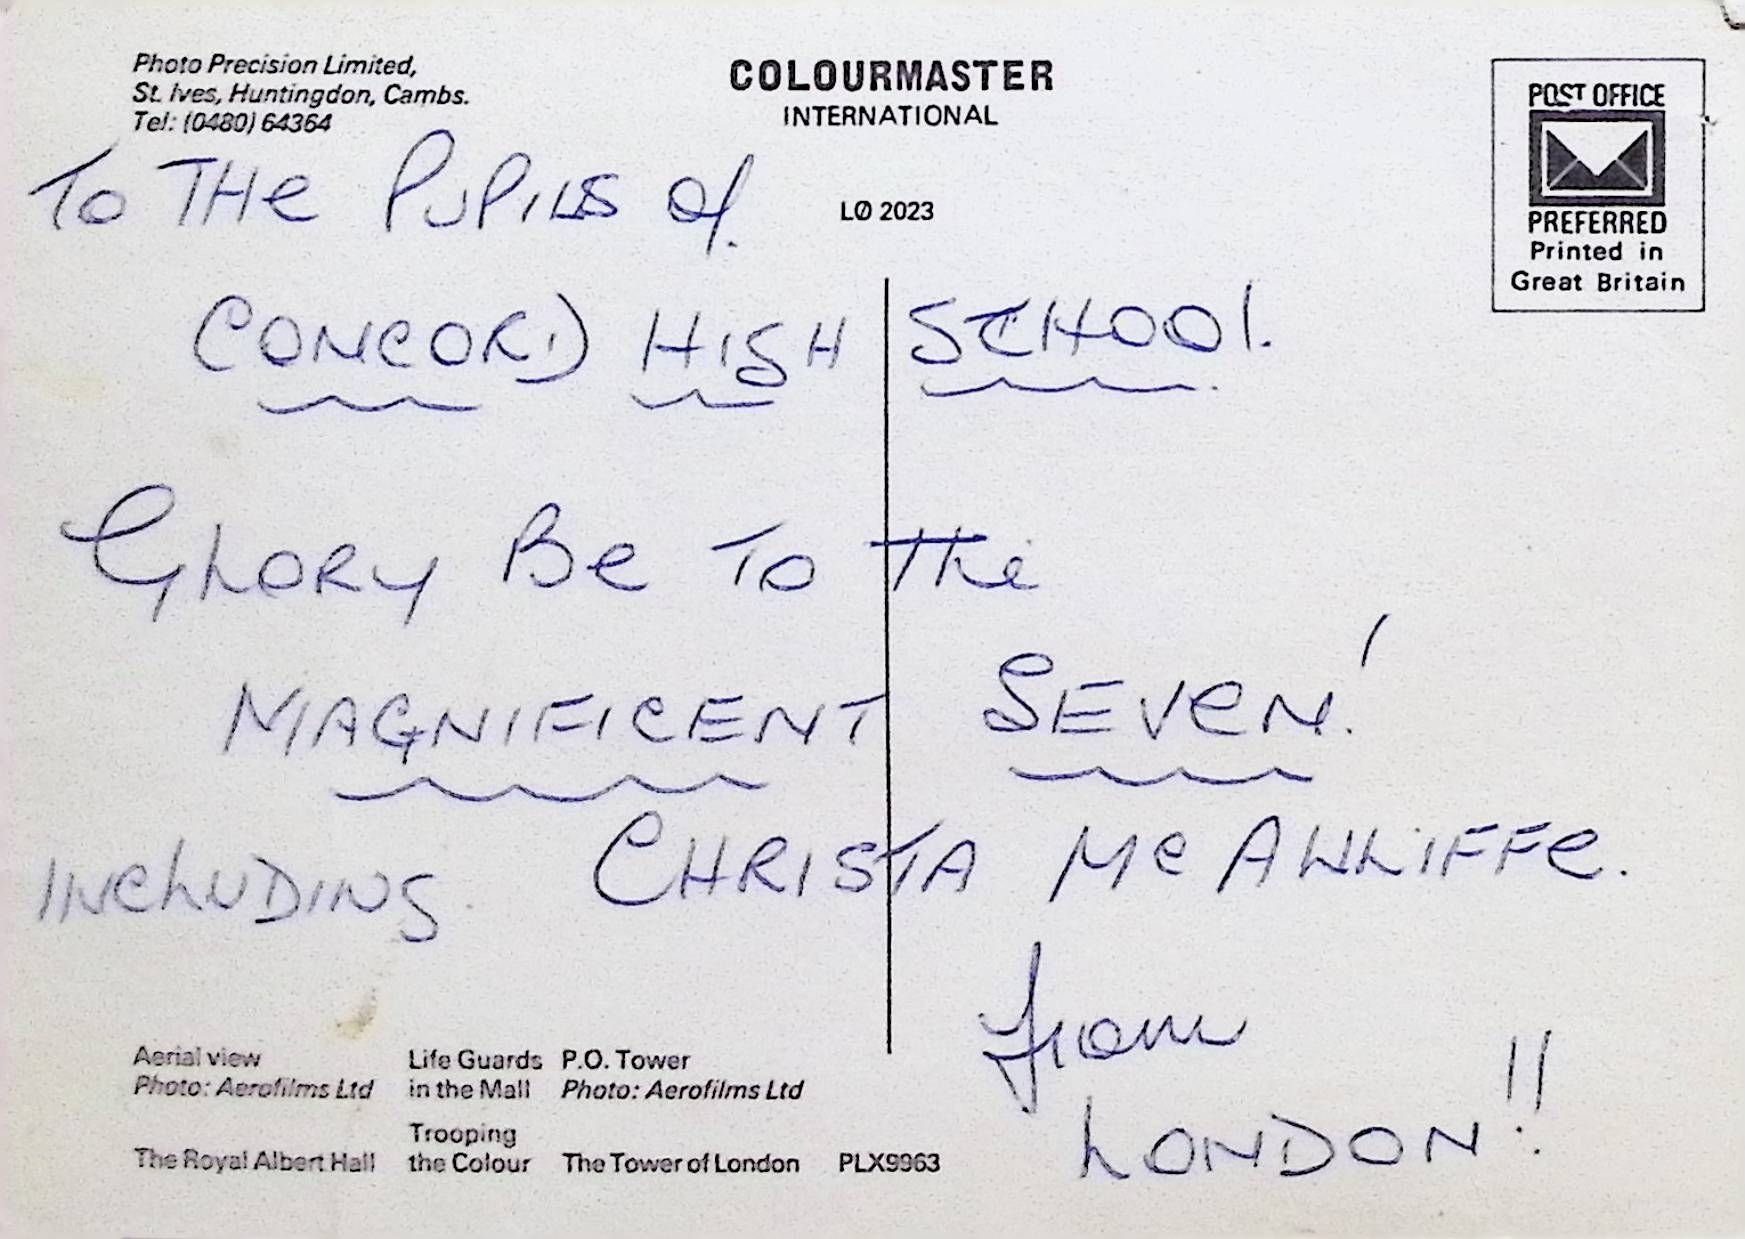 Photo Precision Limited,
St. Ives, Huntingdon, Cambs.
Tel: (0480) 64364
COLOURMASTER
INTERNATIONAL
LØ 2023
POST OFFICE
PREFERRED
Printed in
Great Britain
To THe PUPILS of.
CONCORD HIGH SCHOOL.
GLORY Be To The
MAGNIFICENT SEVEN!
INCLUDING CHRISTA Mc AWLIFFE.
from
LONDON!!
Aerial view
Photo: Aerofilms Ltd
Life Guards
in the Mall
P.O. Tower
Photo: Aerofilms Ltd
The Royal Albert Hall
Trooping
the Colour
The Tower of London
PLX9963